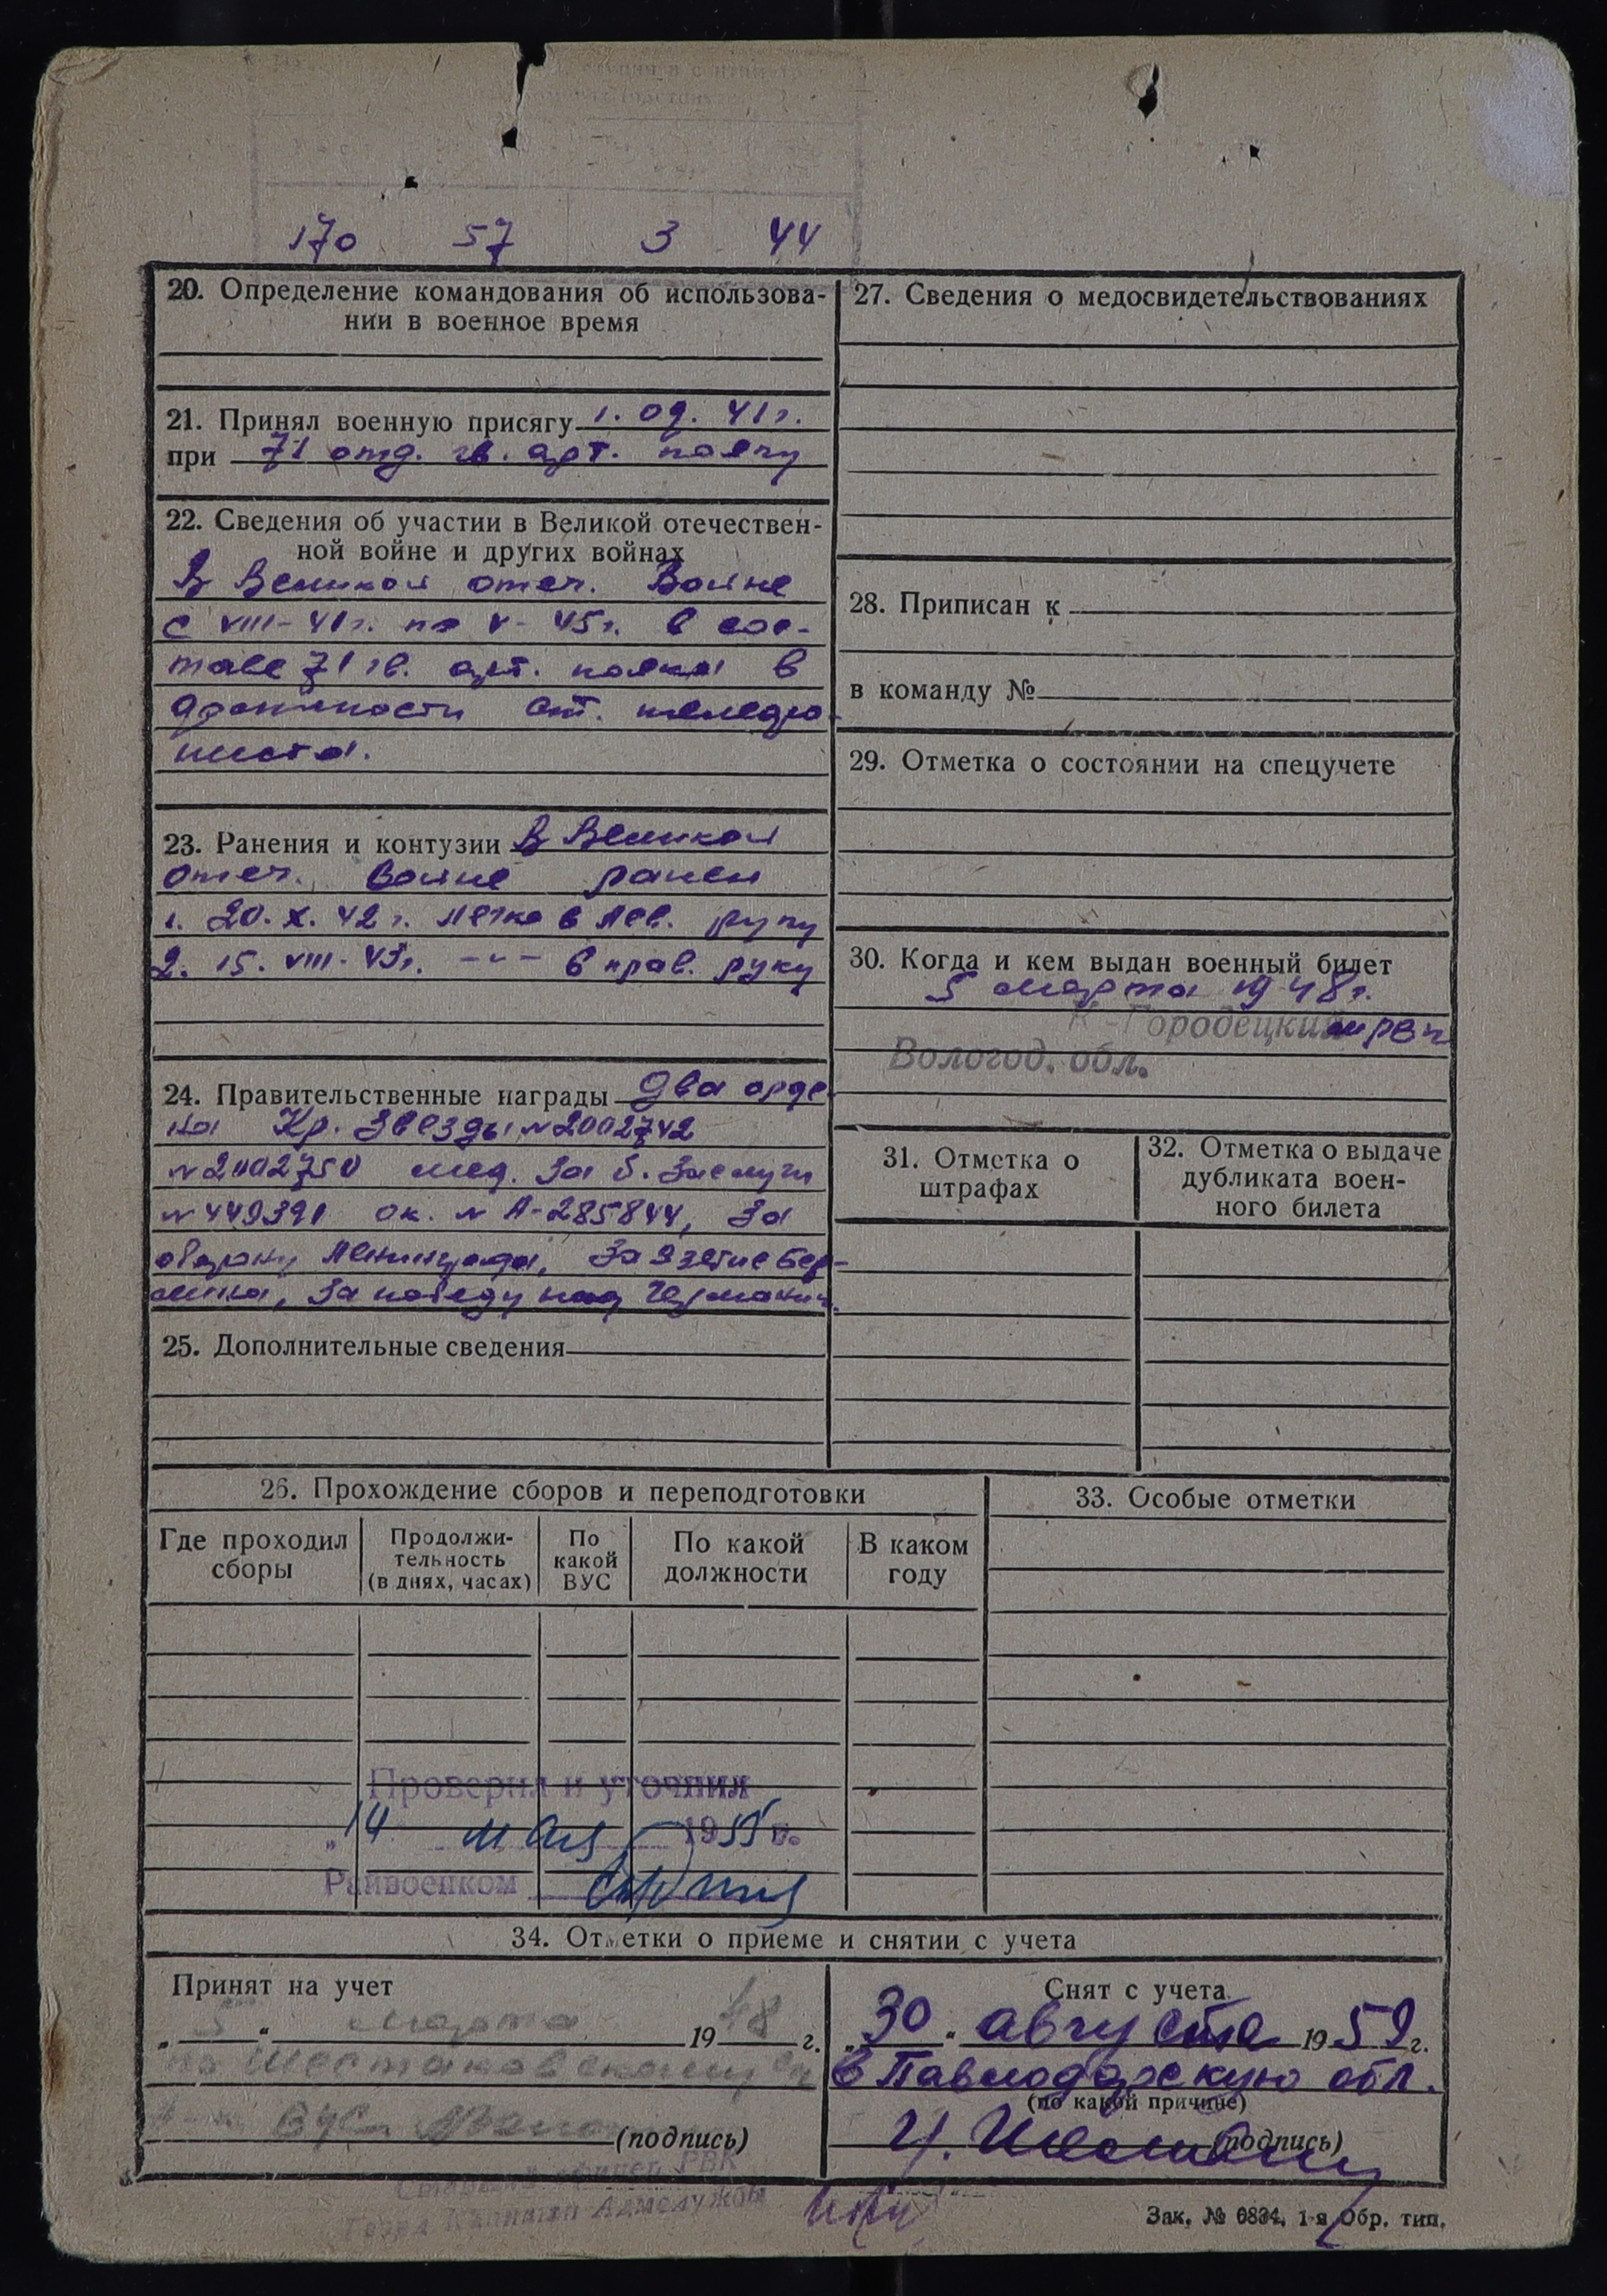 170 57 3 44
20. Определение командования об использова-
нии в военное время
21. Принял военную присягу 1. 09. 41г.
при 71 отд. гв. арт. полку
22. Сведения об участии в Великой отечествен-
ной войне и других войнах
В Великой отеч. Войне
с VIII-41г. по V-45г. в сос-
таве 71 гв. арт. полка в
должности ст. телефо-
ниста.
23. Ранения и контузии В Великой
отеч. Войне ранен
1. 20. X. 42г. легко в лев. руку
2. 15. VIII. 43г. -"- в прав. руку
24. Правительственные награды Два орде-
на Кр. Звезды №2002742
№2002750 мед. За б. Заслуги
№449391 ок. № А-285844, За
оборону Ленинграда, За Взятие Бер-
лина, За победу над Германии.
25. Дополнительные сведения
27. Сведения о медосвидетельствованиях
28. Приписан к
в команду №
29. Отметка о состоянии на спецучете
30. Когда и кем выдан военный билет
5 марта 1948г.
К-Городецким рвк
Вологод. обл.
31. Отметка о
штрафах
32. Отметка о выдаче
дубликата воен-
ного билета
26. Прохождение сборов и переподготовки
Где проходил
сборы
Продолжи-
тельность
(в днях, часах)
По
какой
ВУС
По какой
должности
В каком
году
33. Особые отметки
Проверил и уточнил
„14 мая 1955 г.
Райвоенком
34. Отметки о приеме и снятии с учета
Принят на учет
„ 5 “ марта 19 48 г.
по Шестаковскому
(подпись)
РВК
Капитан Адмслужбы
Снят с учета
„30 “ августа 1959г.
в Павлодарскую обл.
(по какой причине)
(подпись)
Зак. № 0834. 1-я Обр. тип.